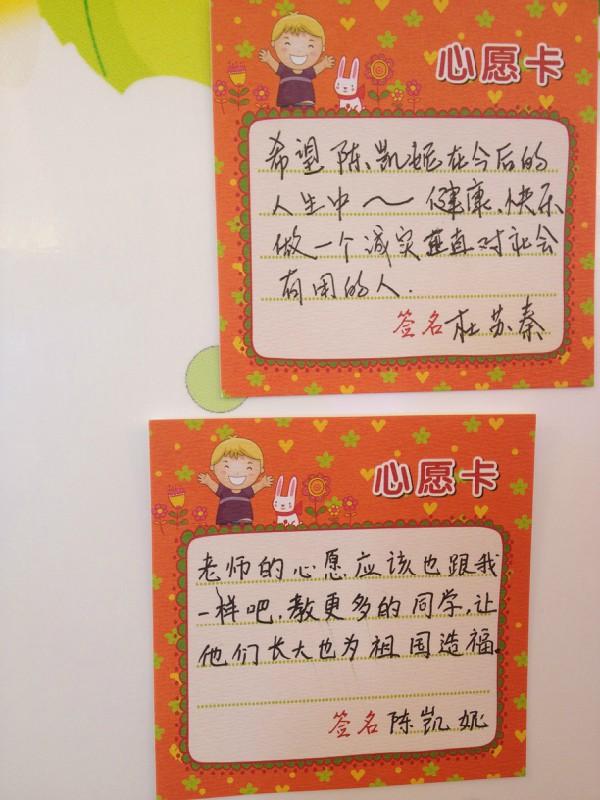 心愿卡
希望陈凯妮在今后的
人生中～健康、快乐
做一个诚实、正直对社会
有用的人.
签名杜苏秦
心愿卡
老师的心愿应该也跟我
一样吧,教更多的同学,让
他们长大也为祖国造福.
签名陈凯妮